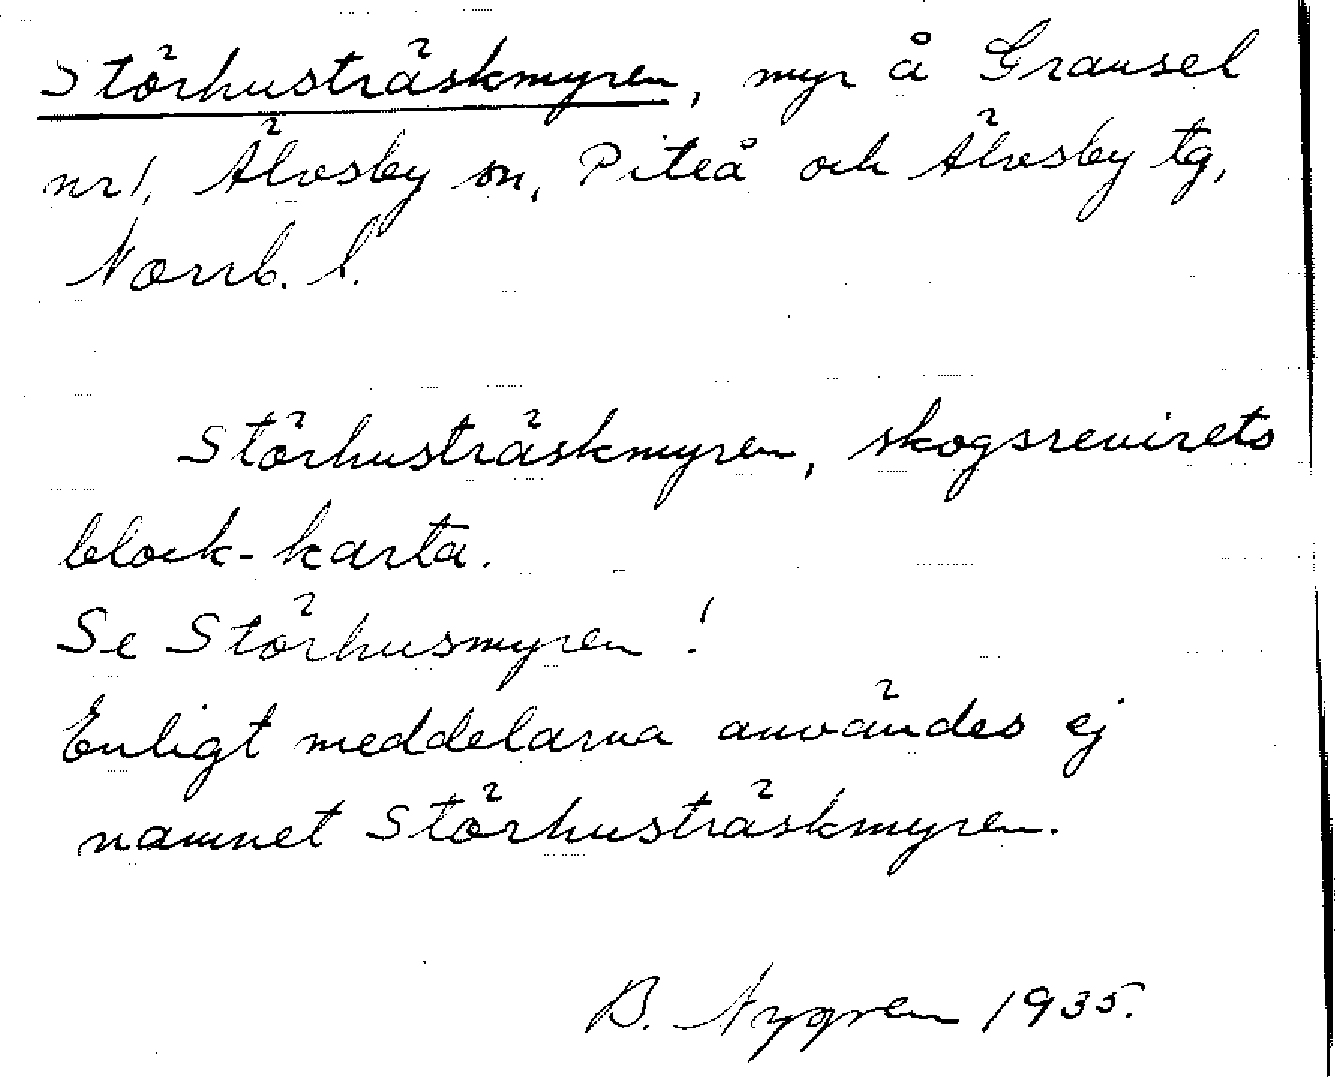 Störhusträskmyren, myr å Gransel
nr 1, Älvsby sn, Piteå och Älvsby tg,
Norrb. l.
Störhusträskmyren, skogsrevirets
block-karta.
Se Störhusmyren!
Enligt meddelarna användes ej
namnet Störhusträskmyren.
B. Nygren 1935.